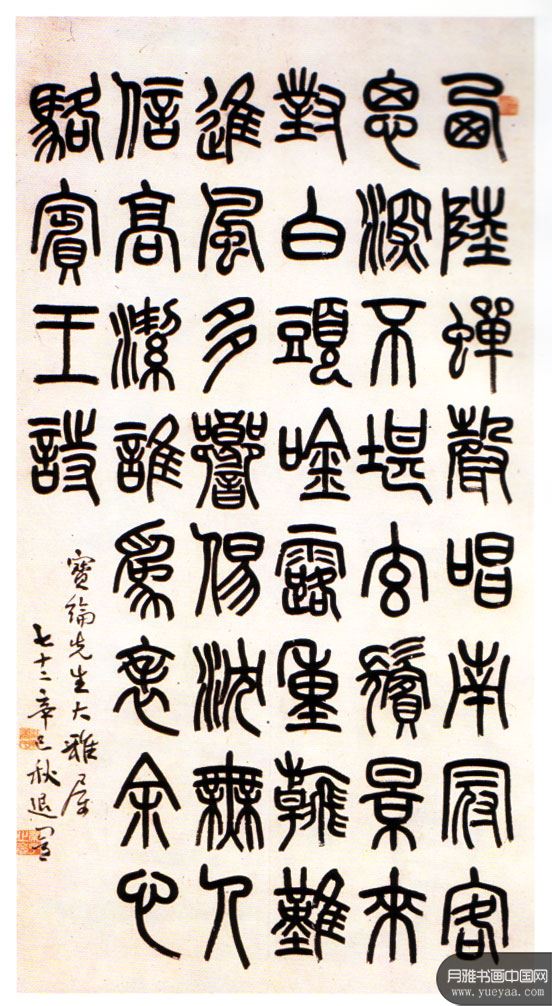 西陸蟬聲唱南冠客
思深不堪玄鬢景來
對白頭唫露重難
進風多響㑥沈無人
信高潔誰為表余心
駱賓王詩
寶綸先生大雅屬
七十二辛巳秋退闇
月雅书画中国网
www.yueyaa.com